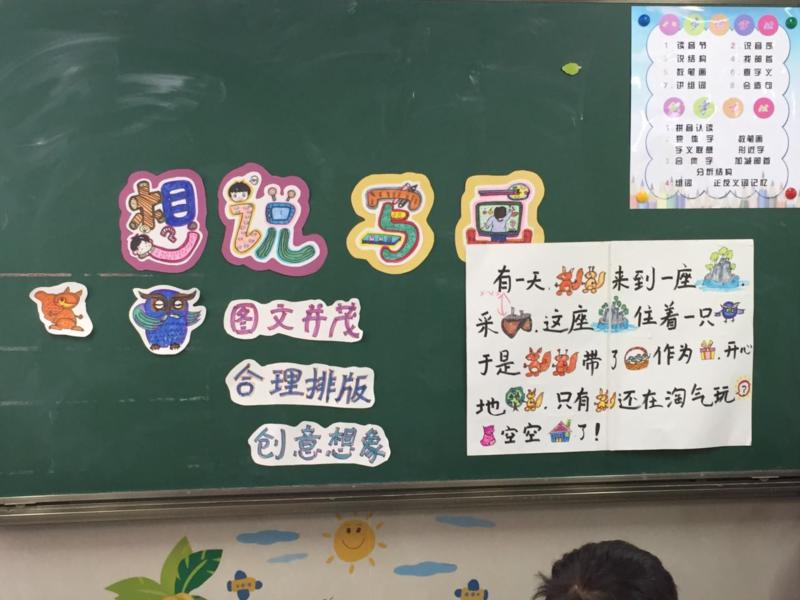 想说写画
图文并茂
合理排版
创意想象
有一天,来到一座
采,这座住着一只
于是带了作为,开心
地,只有还在淘气玩
空空了!
1 读音节 2 识音序
3 识结构 4 找部首
5 数笔画 6 查字义
7 讲组词 8 会造句
1 拼音认读
2 换体字 数笔画
字义联想 形近字
3 合体字 加减部首
分析结构
4 组词 正反义词记忆